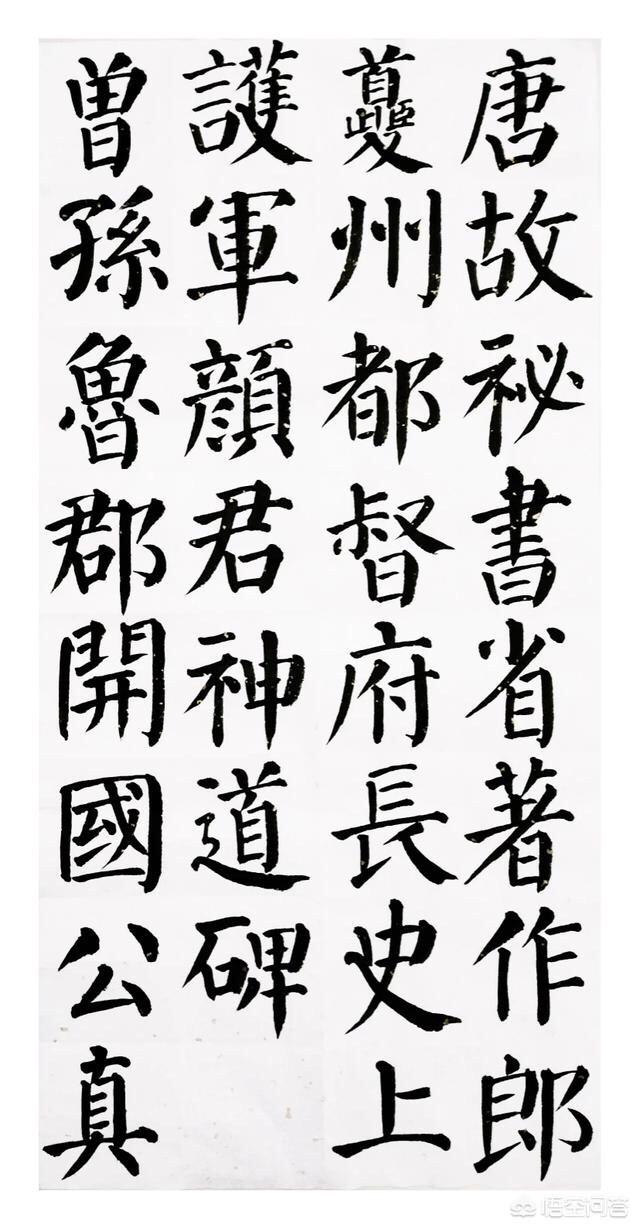 唐故祕書省著作郎
夔州都督府長史上
護軍顏君神道碑
曾孫魯郡開國公真
悟空问答